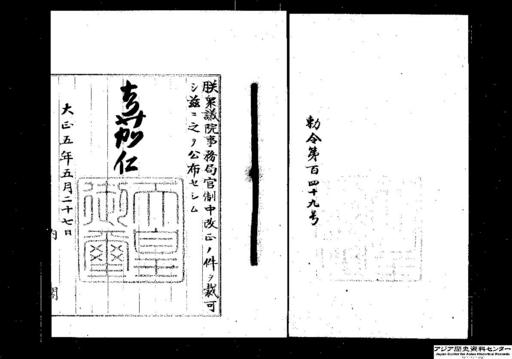 勅令第百四十九号
朕衆議院事務局官制中改正ノ件ヲ裁可
シ茲ニ之ヲ公布セシム
嘉仁
天皇
御璽
大正五年五月二十七日
内閣
アジア歴史資料センター
Japan Center for Asian Historical Records